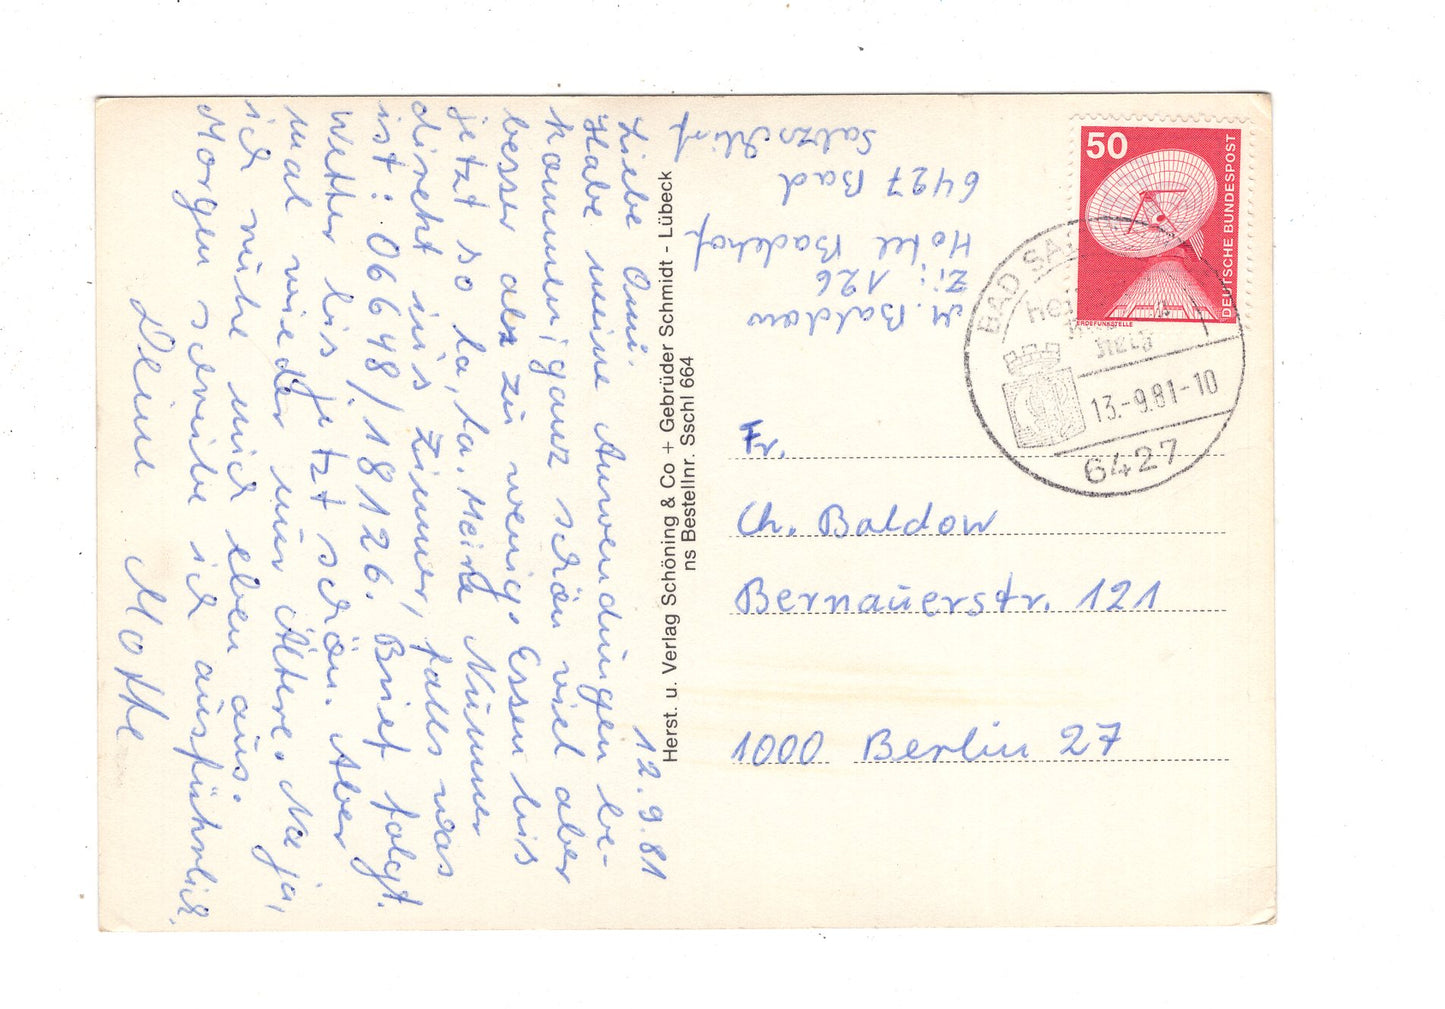 12.9.81
Liebe Omi.
Habe meine Anwendungen be-
kommen, ganz schön viel aber
besser als zu wenig. Essen bis
jetzt so la, la. Meine Nummer
direkt ins Zimmer, falls was
ist: 06648/18126. Brief folgt.
Wetter bis jetzt schön. Aber
mal wieder nur Ältere. Na ja,
ich ruhe mich eben aus.
Morgen schreibe ich ausführlich.
Deine Motte
Herst. u. Verlag Schöning & Co + Gebrüder Schmidt - Lübeck
ns Bestellnr. Sschl 664
M. Baldow
Zi: 126
Hotel Badehof
6427 Bad
Salzschlirf
50
DEUTSCHE BUNDESPOST
ERDEFUNKSTELLE
BAD SAL
13.-9.81-10
6427
Fr.
Ch. Baldow
Bernauerstr. 121
1000 Berlin 27